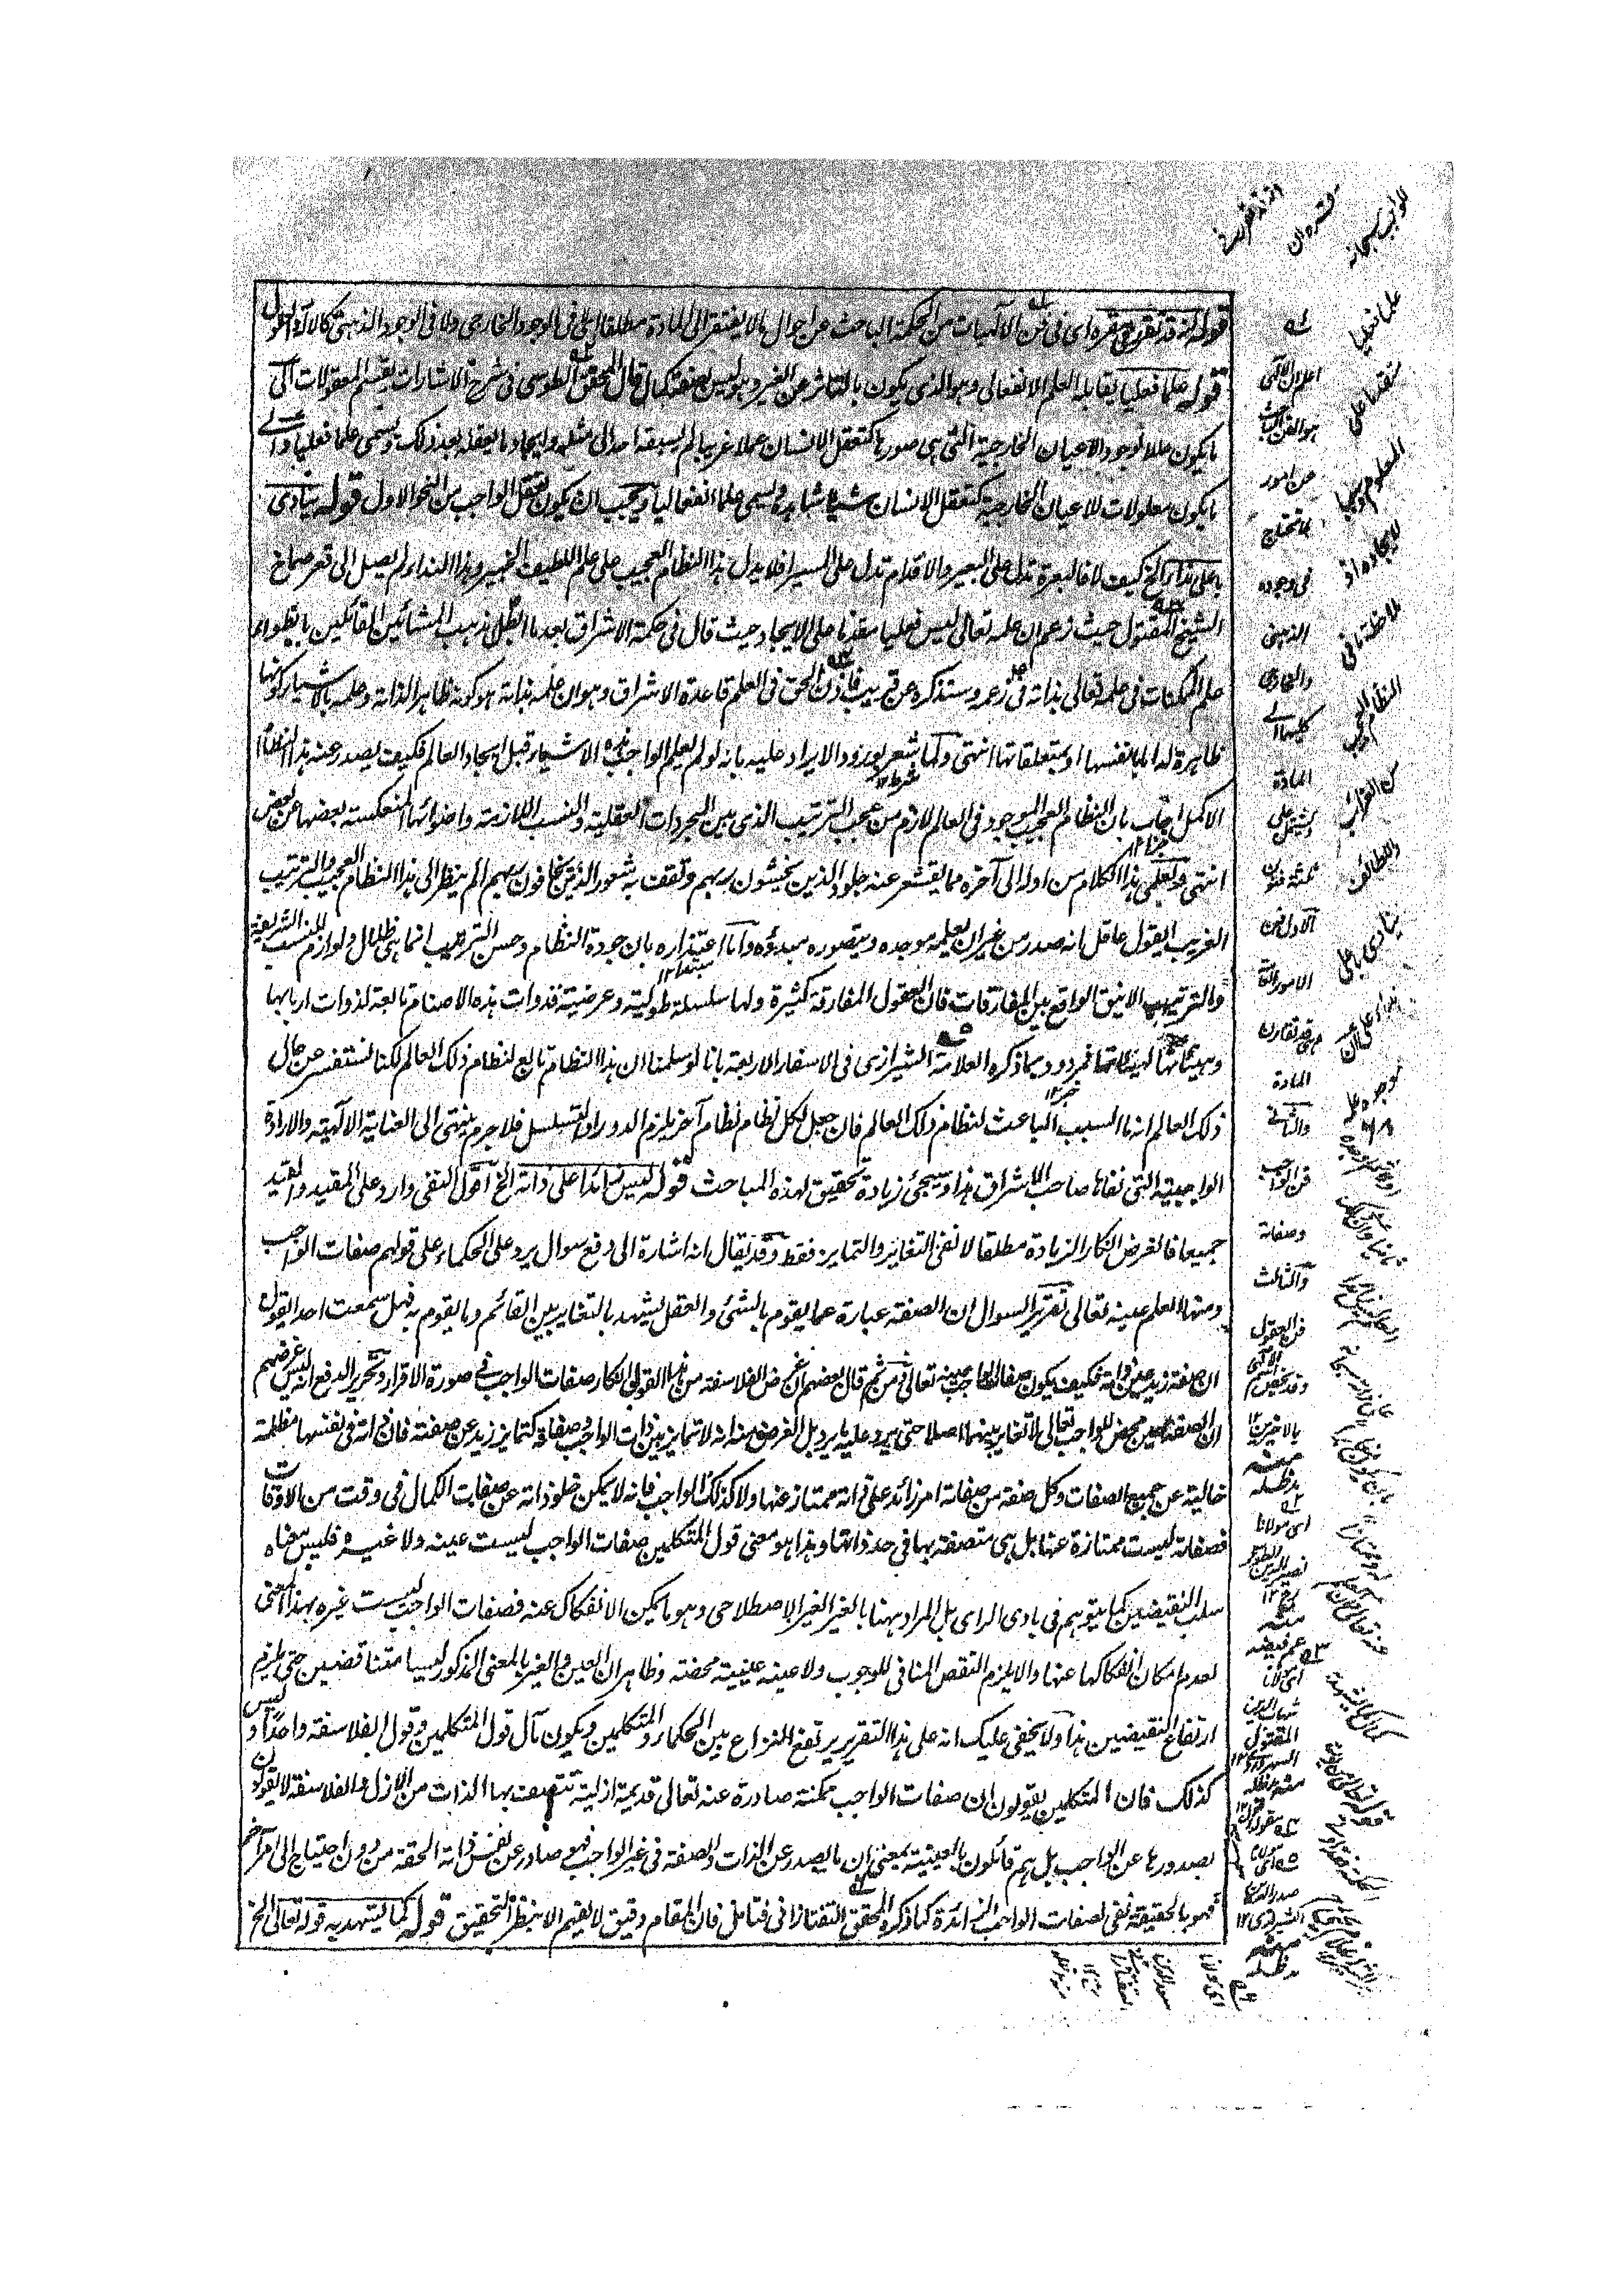 قوله انه قد تقرر فى مقره اى فى فن الالٓهيات من الحكمة الباحث عن احوال ما لا يفتقر الى المادة مطلقا لا فى الوجود الخارجى ولا فى الوجود الذهنى كالالٓه والعقول
قوله علما فعليا يقابله العلم الانفعالى وهو الذى يكون بالتاثر عن الغير وهو ليس بصفة كمال قال المحقق الطوسى فى شرح الاشارات ينقسم المعقولات الى
ما يكون عللا لوجود الاعيان الخارجية التى هى صورها كتعقل الانسان عملا غريبا لم يسبقه احد الى مثله وايجاد ما يعقله بعد ذلك ويسمى علما فعليا والى
ما يكون معلولات للاعيان الخارجية كتعقل الانسان شيئا شاهده ويسمى علما انفعاليا ويجب ان يكون تعقل الواجب من النحو الاول قوله ينادى
باعلى نداء الخ كيف لا فالبعرة تدل على البعير والاقدام تدل على المسير افلا يدل هذا النظام العجيب على علم اللطيف الخبير وهذا النداء لم يصل الى قعر صماخ
الشيخ المقتول حيث زعم ان علمه تعالى ليس فعليا مقدما على الايجاد حيث قال فى حكمة الاشراق بعد ما ابطل مذهب المشائين القائلين بانطواء
علم الممكنات فى علمه تعالى بذاته فى زعمه وستذكره عن قريب فاذن الحق فى العلم قاعدة الاشراق وهو ان علمه بذاته هو كونه ظاهرا لذاته وعلمه بالاشياء كونها
ظاهرة له اما بانفسها او بمتعلقاتها انتهى ولما شعر بورود الايراد عليه بانه لو لم يعلم الواجب هذه الاشياء قبل ايجاد العالم فكيف يصدر عنه هذا النظام
الاكمل اجاب بان النظام العجيب الموجود فى العالم لازم من عجب الترتيب الذى بين المجردات العقلية والنسب اللازمة واضوائها المنعكسة بعضها عن بعض
انتهى ولعلمى هذا الكلام من اوله الى آخره مما يقشعر عنه جلود الذين يخشون ربهم وتقف به شعور الذين يخافون ربهم الم ينظر الى هذا النظام العجيب والترتيب
الغريب ايقول عاقل انه صدر من غير ان يعلمه موجده ويتصوره مبدؤه واما اعتذاره بان جودة النظام وحسن الترتيب انما هى ظلال ولوازم للنسب الشريفة
والترتيب الانيق الواقع بين المفارقات فان العقول المفارقة كثيرة ولها سلسلة طولية وعرضية فذوات هذه الاصنام تابعة لذوات اربابها
وهيئاتها لهيئاتها فمردود بما ذكره العلامة الشيرازى فى الاسفار الاربعة بانا لو سلمنا ان هذا النظام تابع لنظام ذلك العالم لكنا نستفسر عن حال
ذلك العالم انه ما السبب الباعث لنظام ذلك العالم فان جعل لكل نظام نظام آخر يلزم الدور او التسلسل فلا جرم ينتهى الى العناية الالٓهية والارادة
الواجبية التى نفاها صاحب الاشراق هذا وسيجئ زيادة تحقيق لهذه المباحث قوله ليس زائدا على ذاته الخ اقول النفى وارد على المقيد والقيد
جميعا فالغرض انكار الزيادة مطلقا لا نفى التغاير والتمايز فقط وقد يقال انه اشارة الى دفع سوال يرد على الحكماء على قولهم صفات الواجب
ومنها العلم عينه تعالى تقرير السوال ان الصفة عبارة عما يقوم بالشئ والعقل يشهد بالتغاير بين القائم وما يقوم به فهل سمعت احدا يقول
ان صفة زيد عين ذاته فكيف يكون صفات الواجب عينه تعالى ومن ثم قال بعضهم ان غرض الفلاسفة من هذا القول انكار صفات الواجب فى صورة الاقرار وتحرير الدفع انه ليس غرضهم
ان الصفة عين محض للواجب تعالى لا تغاير بينهما اصلا حتى يرد عليه ما يرد بل الغرض منه انه لا تمايز بين ذات الواجب وصفاته كتمايز زيد عن صفته فان ذاته فى نفسها مظلمة
خالية عن جميع الصفات وكل صفة من صفاته امر زائد على ذاته ممتاز عنها ولا كذلك الواجب فانه لا يمكن خلو ذاته عن صفات الكمال فى وقت من الاوقات
فصفاته ليست ممتازة عنها بل هى متصفة بها فى حد ذاتها وهذا هو معنى قول المتكلمين صفات الواجب ليست عينه ولا غيره فليس معناه
سلب النقيضين كما يتوهم فى بادى الراى بل المراد ههنا بالغير الغير الاصطلاحى وهو ما يمكن الانفكاك عنه فصفات الواجب ليست غيره بهذا المعنى
لعدم امكان انفكاكها عنها والا يلزم النقص المنافى للوجوب ولا عينه عينية محضة وظاهر ان العين والغير بالمعنى المذكور ليسا متناقضين حتى يلزم
ارتفاع النقيضين هذا ولا يخفى عليك انه على هذا التقرير يرتفع النزاع بين الحكماء والمتكلمين ويكون مآل قول المتكلمين وقول الفلاسفة واحدا وليس
كذلك فان المتكلمين يقولون ان صفات الواجب ممكنة صادرة عنه تعالى قديمة ازلية تتصف بها الذات من الازل والفلاسفة لا يقولون
بصدورها عن الواجب بل هم قائلون بالعينية بمعنى ان ما يصدر عن الذات والصفة فى غير الواجب فهو صادر عن نفس ذاته الحقة من دون احتياج الى امر آخر
فهو بالحقيقة نفى لصفات الواجب الزائدة كما ذكره المحقق التفتازانى فتامل فان المقام دقيق لا يفهم الا بنظر التحقيق قوله كما يشهد به قوله تعالى الخ
اعلم ان الالٓهى
هو الفن الباحث
عن امور
لا تحتاج
فى وجوده
الذهنى
والخارجى
كليهما الى
المادة
ويشتمل على
ثلثة فنون
الاول فن
الامور العامة
قد تقارن
المادة
والثانى
فن الواجب
وصفاته
والثالث
فن العقول
وقد يخص
بالاخيرين ١٢
منه
مد ظله
اى مولانا
نصير الدين الطوسى
منه
عم فيضه
اى مولانا
شهاب الدين
المقتول
السهروردى ١٢
منه مد ظله
اى مولانا
صدر الدين
الشيرازى ١٢
منه
مد ظله